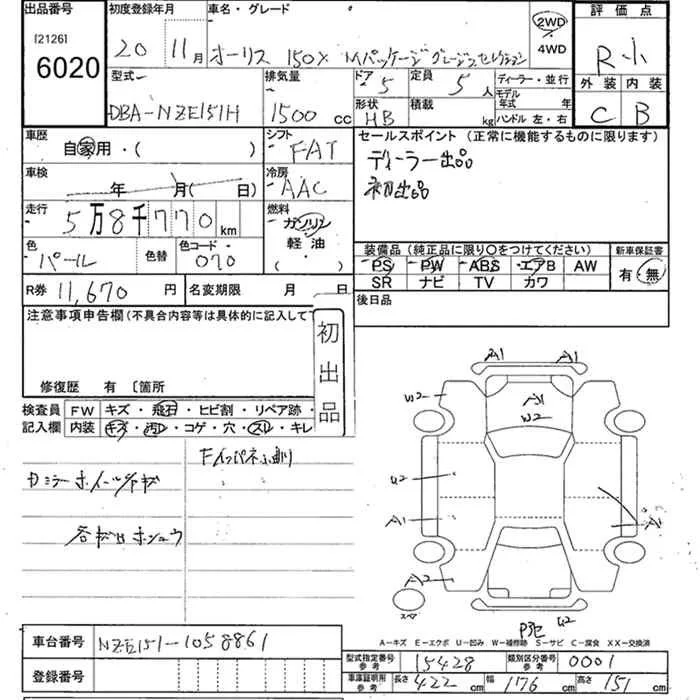 出品番号 初度登録年月 車名・グレード 評価点
[2126]
6020
20 11月 オーリス 150X Mパッケージ 2WD R小
4WD
型式 排気量 ドア 定員 ディーラー・並行 外装 内装
DBA-NZE151H 1500 cc 5 5人 モデル年式 年 C B
形状 HB 積載 kg ハンドル 左・右
車歴 シフト セールスポイント (正常に機能するものに限ります)
自家用・( ) FAT ディーラー出品
車検 冷房 初出品
年 月( 日) AAC
走行 燃料
5万8千770km ガソリン
軽油
( )
色 色替 色コード 装備品 (純正品に限り○をつけてください) 新車保証書
パール 070 PS PW ABS エアB AW 有・無
SR ナビ TV カワ
R券 11,670円 名変期限 月 日 後日品
注意事項申告欄(不具合内容等は具体的に記入して下
初出品
修復歴 有 〔箇所
検査員 FW キズ・飛石・ヒビ割・リペア跡・
記入欄 内装 キズ・汚レ・コゲ・穴・スレ・キレ
A1 A1
W2 A1
W2
U2
A1 A1
A2
U2
A-キズ E-エクボ U-凹み W-補修跡 S-サビ C-腐食 XX-交換済
車台番号 NZE151-1058861
登録番号
型式指定番号 参考 15428 類別区分番号 参考 0001
車庫証明用 参考 長さ 422cm 幅 176cm 高さ 151cm